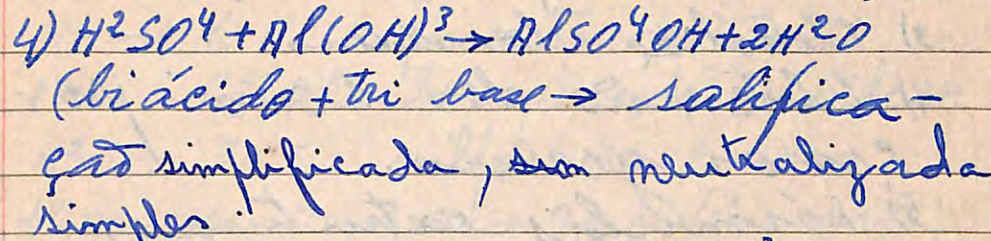 4) H²SO⁴ + Al(OH)³ → AlSO⁴OH + 2H²O
(biácido + tri base → salifica-
ção simplificada, sem neutralizada
simples.